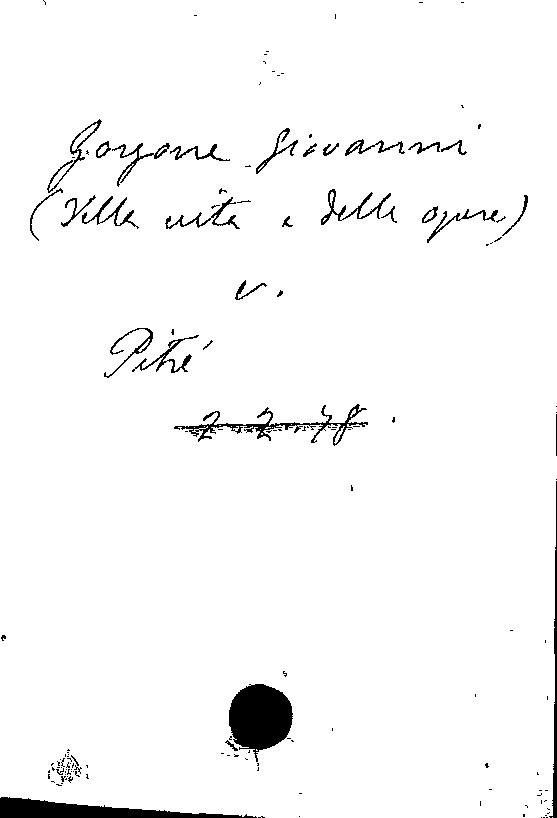 Gorgone Giovanni
(Della vita e delle opere)
v.
Pitré
2.2.48.